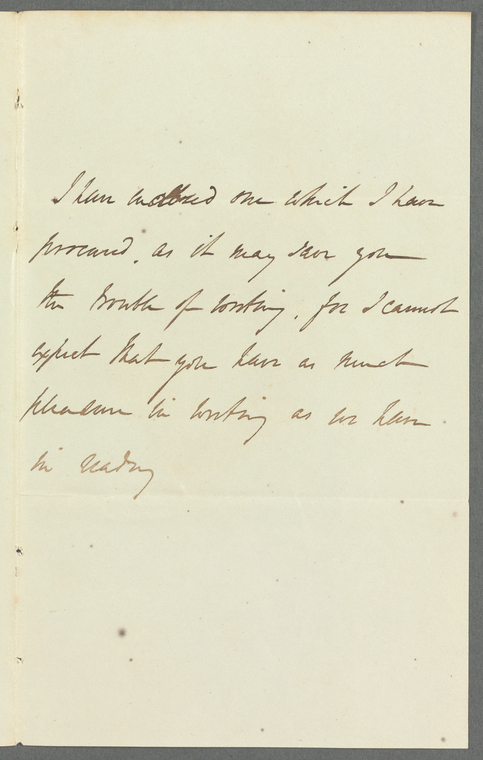 I have enclosed one which I have
procured, as it may save you
the trouble of writing, for I cannot
expect that you have as much
pleasure in writing as we have
in reading